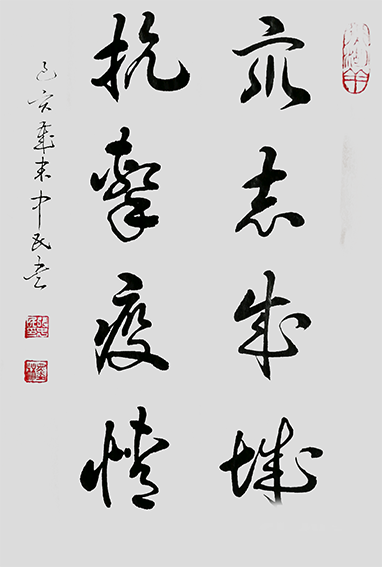 众志成城
抗击疫情
己亥岁末中民书